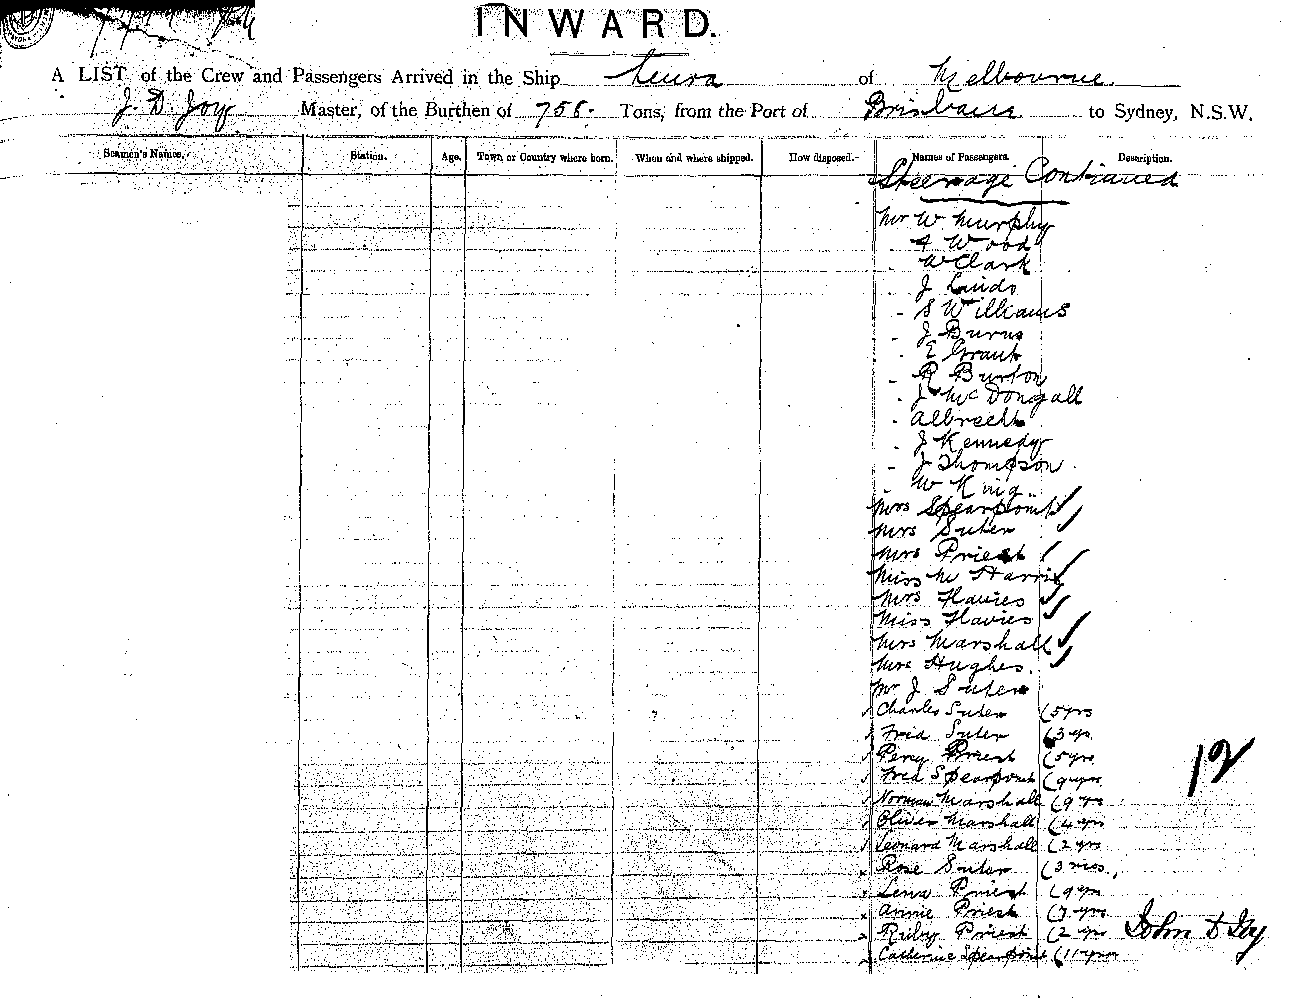 INWARD.
A LIST of the Crew and Passengers Arrived in the Ship Leura of Melbourne.
J. D. Joy Master, of the Burthen of 758. Tons, from the Port of Brisbane to Sydney, N.S.W.
Seamen's Names. Station. Age. Town or Country where born. When and where shipped. How disposed. Names of Passengers. Description.
Steerage Continued
Mr W Murphy
A Wood
W Clark
J
- S Williams
- J Burns
- E Grant
- R Burton
- J McDougall
- Albrecht
- J Kennedy
- J Thompson
- W King
Mrs Spearpoint
Mrs Suter
Mrs Priest
Miss M Harris
Mrs Havies
Miss Havies
Mrs Marshall
Mrs Hughes.
Mr J Suter
Charles Suter (5 yrs
Fred Suter (3 yrs
Percy Priest (5 yrs
Fred Spearpoint (9 yrs
Norman Marshall (9 yrs
Oliver Marshall (4 yrs
Leonard Marshall (2 yrs
12
Rose Suter (3 mos.
Lena Priest (9 yrs
Annie Priest (7 yrs
Ruby Priest (2 yrs John D Joy
Catherine Spearpoint (11 yrs